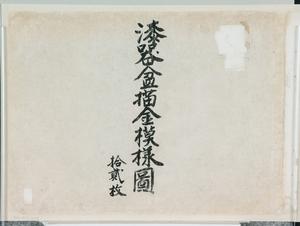 漆器盆描金模様圖
拾貳枚